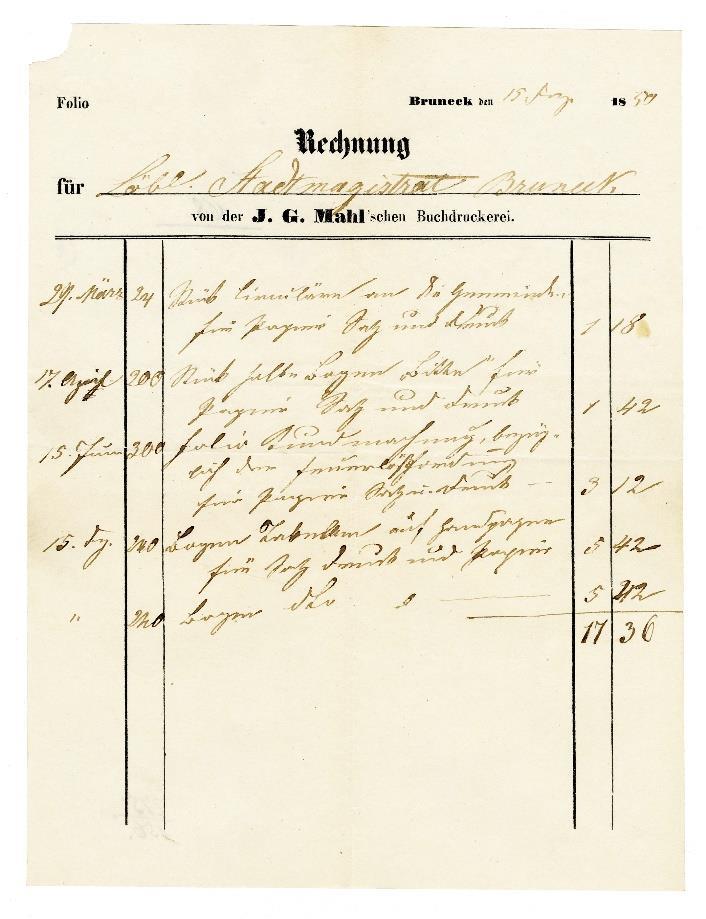 Folio Bruneck den 15. 1850
Rechnung
für Löbl. Stadtmagistrat Bruneck.
von der J. G. Mahl'schen Buchdruckerei.
29. März 24 Stük Circuläre an die Gemeinde
für Papier Satz und Druck 1 18
17. April 200 Stük halbe Bogen für
Papier Satz und Druck 1 42
15. Juni 300 Folio Kundmachung, bezüg-
lich der Feuerlöschordnung
für Papier Satz u. Druck — 3 12
15. 240 Bogen Tabellen auf
für Satz Druck und Papier 5 42
" 240 Bogen dto 5 42
17 36